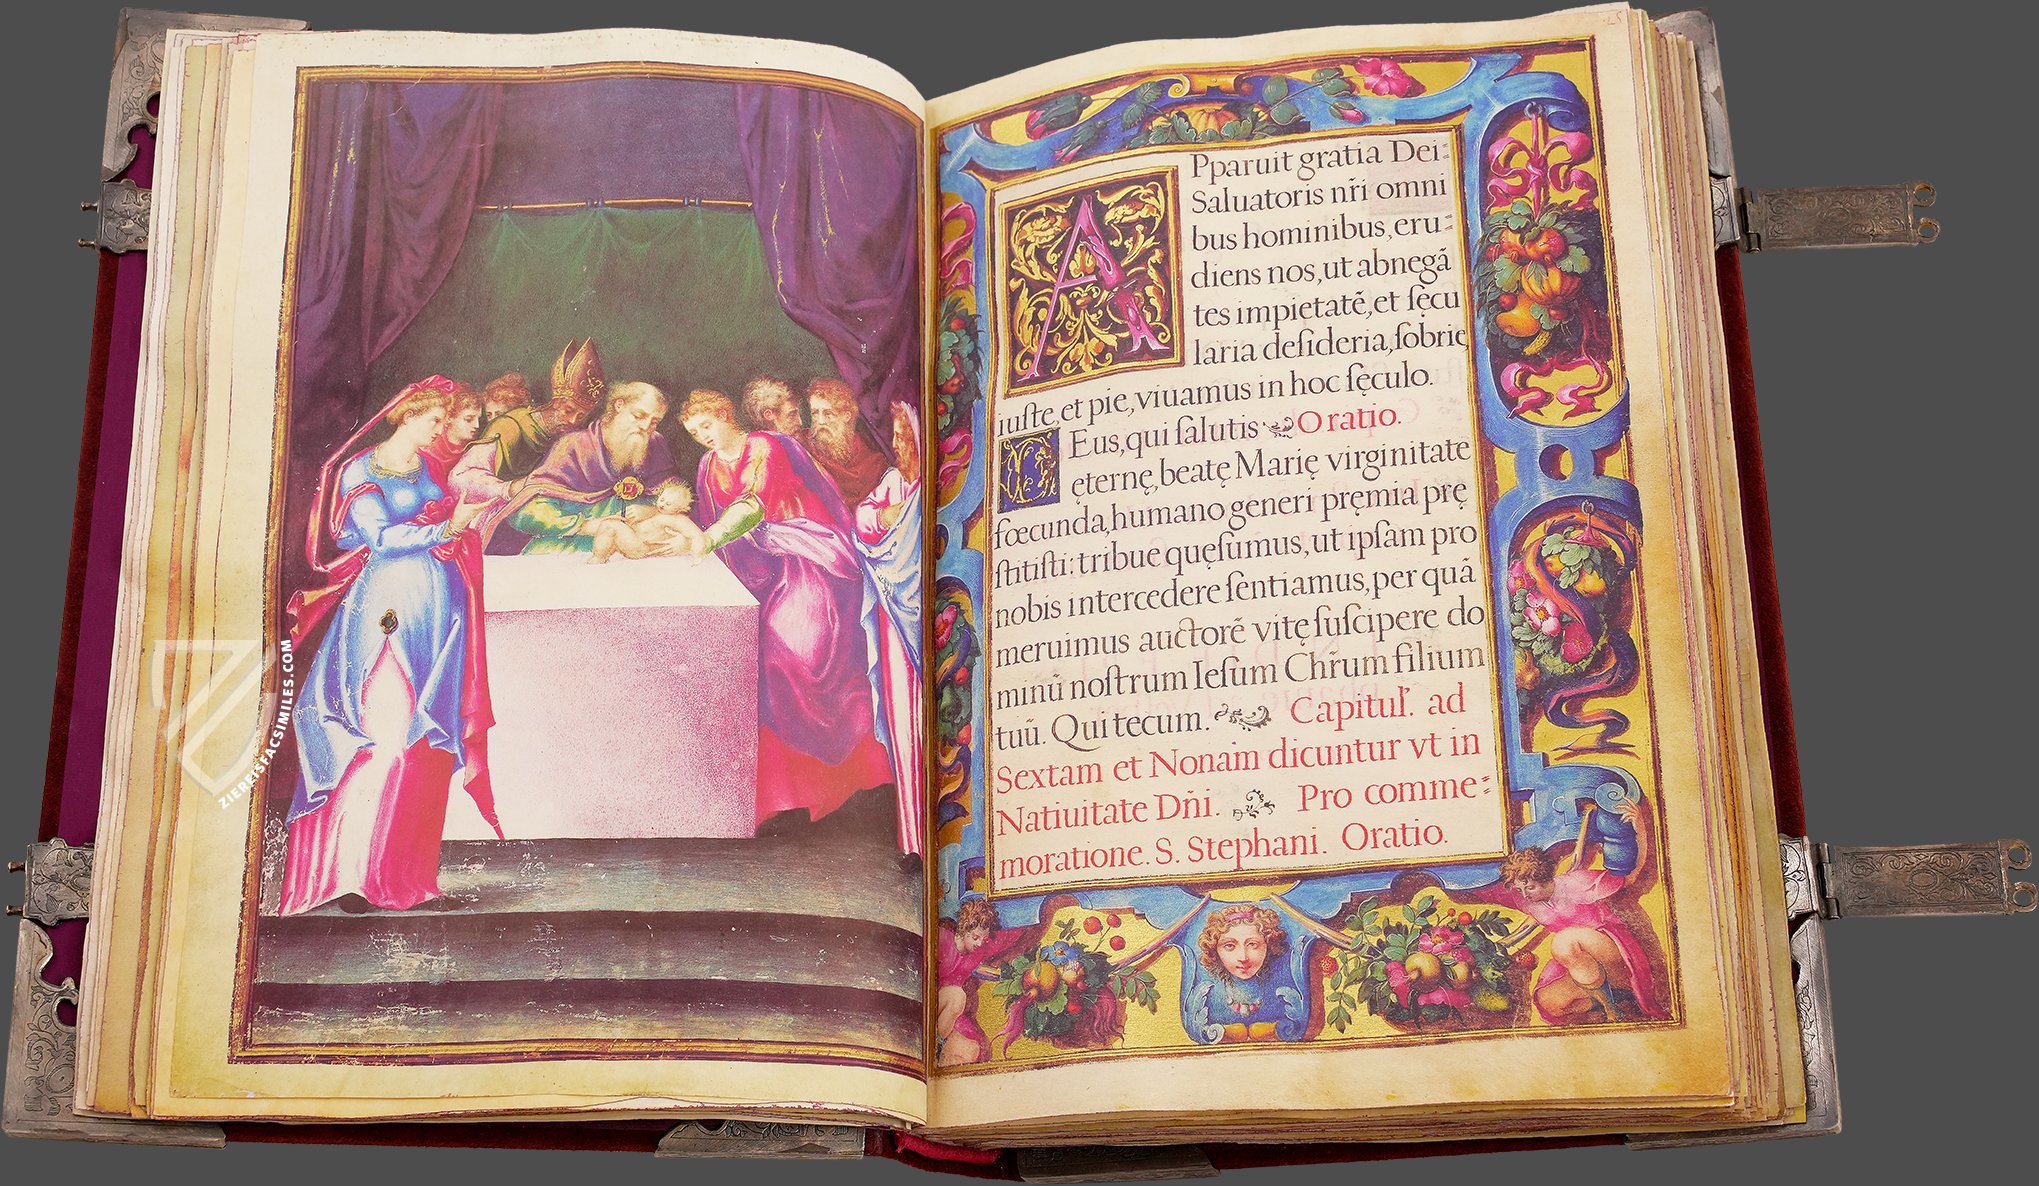 ZIEREISFACSIMILES.COM
Pparuit gratia Dei:
Saluatoris nr̃i omni
bus hominibus, eru:
diens nos, ut abnegã
tes impietatẽ, et ſęcu
laria deſideria, ſobrię
iuſte, et pie, viuamus in hoc ſęculo.
DEus, qui ſalutis Oratio.
ęternę, beatę Marię virginitate
fœcunda, humano generi pręmia prę
ſtitiſti: tribue quęſumus, ut ipſam pro
nobis intercedere ſentiamus, per quã
meruimus auctorẽ vitę ſuſcipere do
minũ noſtrum Ieſum Chr̃um filium
tuũ. Qui tecum. Capitul'. ad
Sextam et Nonam dicuntur vt in
Natiuitate Dñi. Pro comme:
moratione. S. Stephani. Oratio.